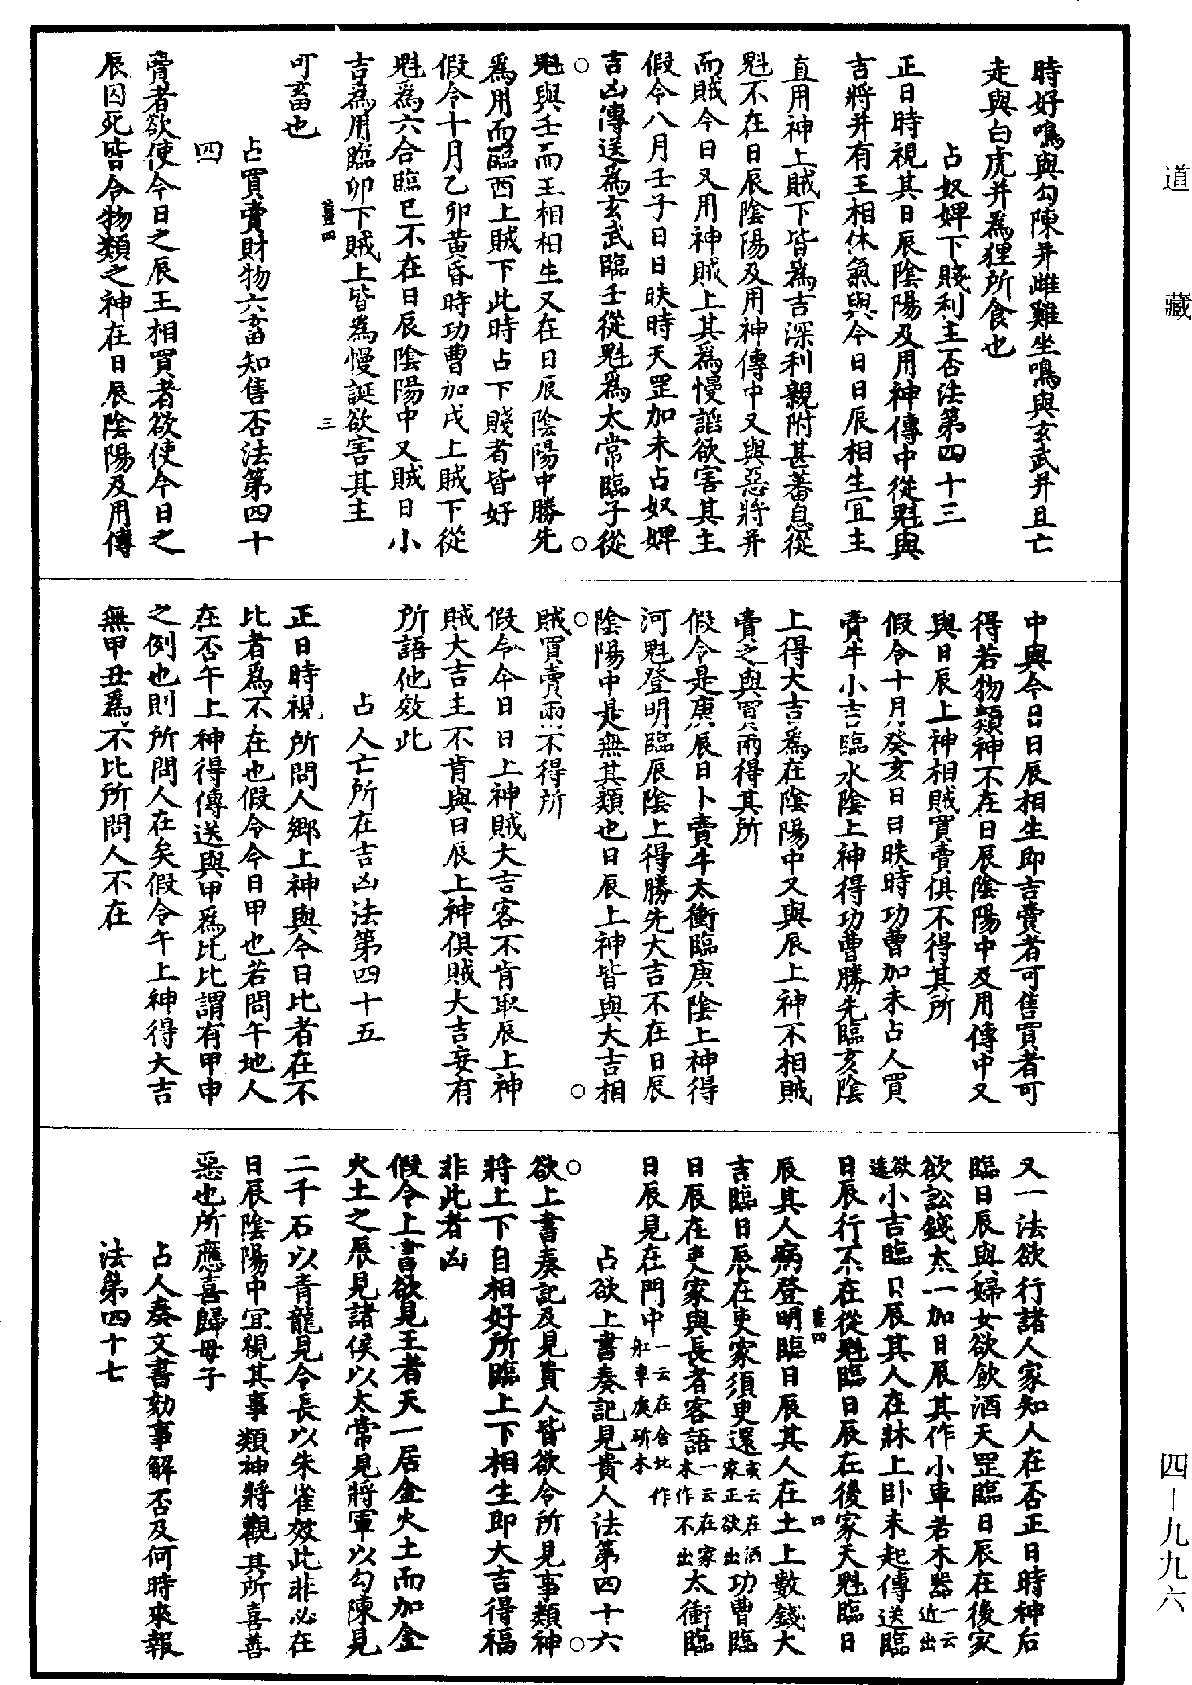 道藏
時好鳴與勾陳并雌雞坐鳴與玄武并且亡
走與白虎并為狸所食也
占奴婢下賤利主否法第四十三
正日時視其日辰陰陽及用神傳中從魁與
吉將并有王相休氣與今日日辰相生宜主
直用神上賊下皆為吉深利親附甚蕃息從
魁不在日辰陰陽及用神傳中又與惡將并
而賊今日又用神賊上其為慢謟欲害其主
假令八月壬子日日昳時天罡加未占奴婢
吉凶傳送為玄武臨壬從魁為太常臨子從
魁與壬而王相相生又在日辰陰陽中勝先
為用而臨酉上賊下此時占下賤者皆好
假令十月乙卯黃昏時功曹加戌上賊下從
魁為六合臨巳不在日辰陰陽中又賊日小
吉為用臨卯下賊上皆為慢誕欲害其主
三
可畜也
占買賣財物六畜知售否法第四十
四
賣者欲使今日之辰王相買者欲使今日之
辰囚死皆令物類之神在日辰陰陽及用傳
中與今日日辰相生即吉賣者可售買者可
得若物類神不在日辰陰陽中及用傳中又
與日辰上神相賊買賣俱不得其所
假令十月癸亥日日昳時功曹加未占人買
賣牛小吉臨水陰上神得功曹勝先臨亥陰
上得大吉為在陰陽中又與辰上神不相賊
賣之與買兩得其所
假令是庚辰日卜賣牛太衝臨庚陰上神得
河魁登明臨辰陰上得勝先大吉不在日辰
陰陽中是無其類也日辰上神皆與大吉相
賊買賣兩不得所
假令今日日上神賊大吉客不肯取辰上神
賊大吉主不肯與日辰上神俱賊大吉妄有
所語他效此
占人亡所在吉凶法第四十五
正日時視所問人鄉上神與今日比者在不
比者為不在也假令今日甲也若問午地人
在否午上神得傳送與甲為比比謂有甲申
之例也則所問人在矣假令午上神得大吉
無甲丑為不比所問人不在
又一法欲行諸人家知人在否正日時神后
臨日辰與婦女欲飲酒天罡臨日辰在後家
欲訟錢太一加日辰其作小車若木器一云近出
欲遠小吉臨日辰其人在牀上臥未起傳送臨
日辰行不在從魁臨日辰在後家天魁臨日
四
辰其人病登明臨日辰其人在土上數錢大
吉臨日辰在吏家須吏還亥云在酒家正欲出功曹臨
日辰在吏家與長者客語一云在家木作不出太衝臨
日辰見在門中一云在舍北作舡車廣斫木
占欲上書奏記見貴人法第四十六
欲上書奏記及見貴人皆欲令所見事類神
將上下自相好所臨上下相生即大吉得福
非此者凶
假令上書欲見王者天一居金火土而加金
火土之辰見諸侯以太常見將軍以勾陳見
二千石以青龍見令長以朱雀效此非必在
日辰陰陽中宜視其事類神將觀其所喜善
惡也所應喜歸母子
占人奏文書劾事解否及何時來報
法第四十七
四—九九六